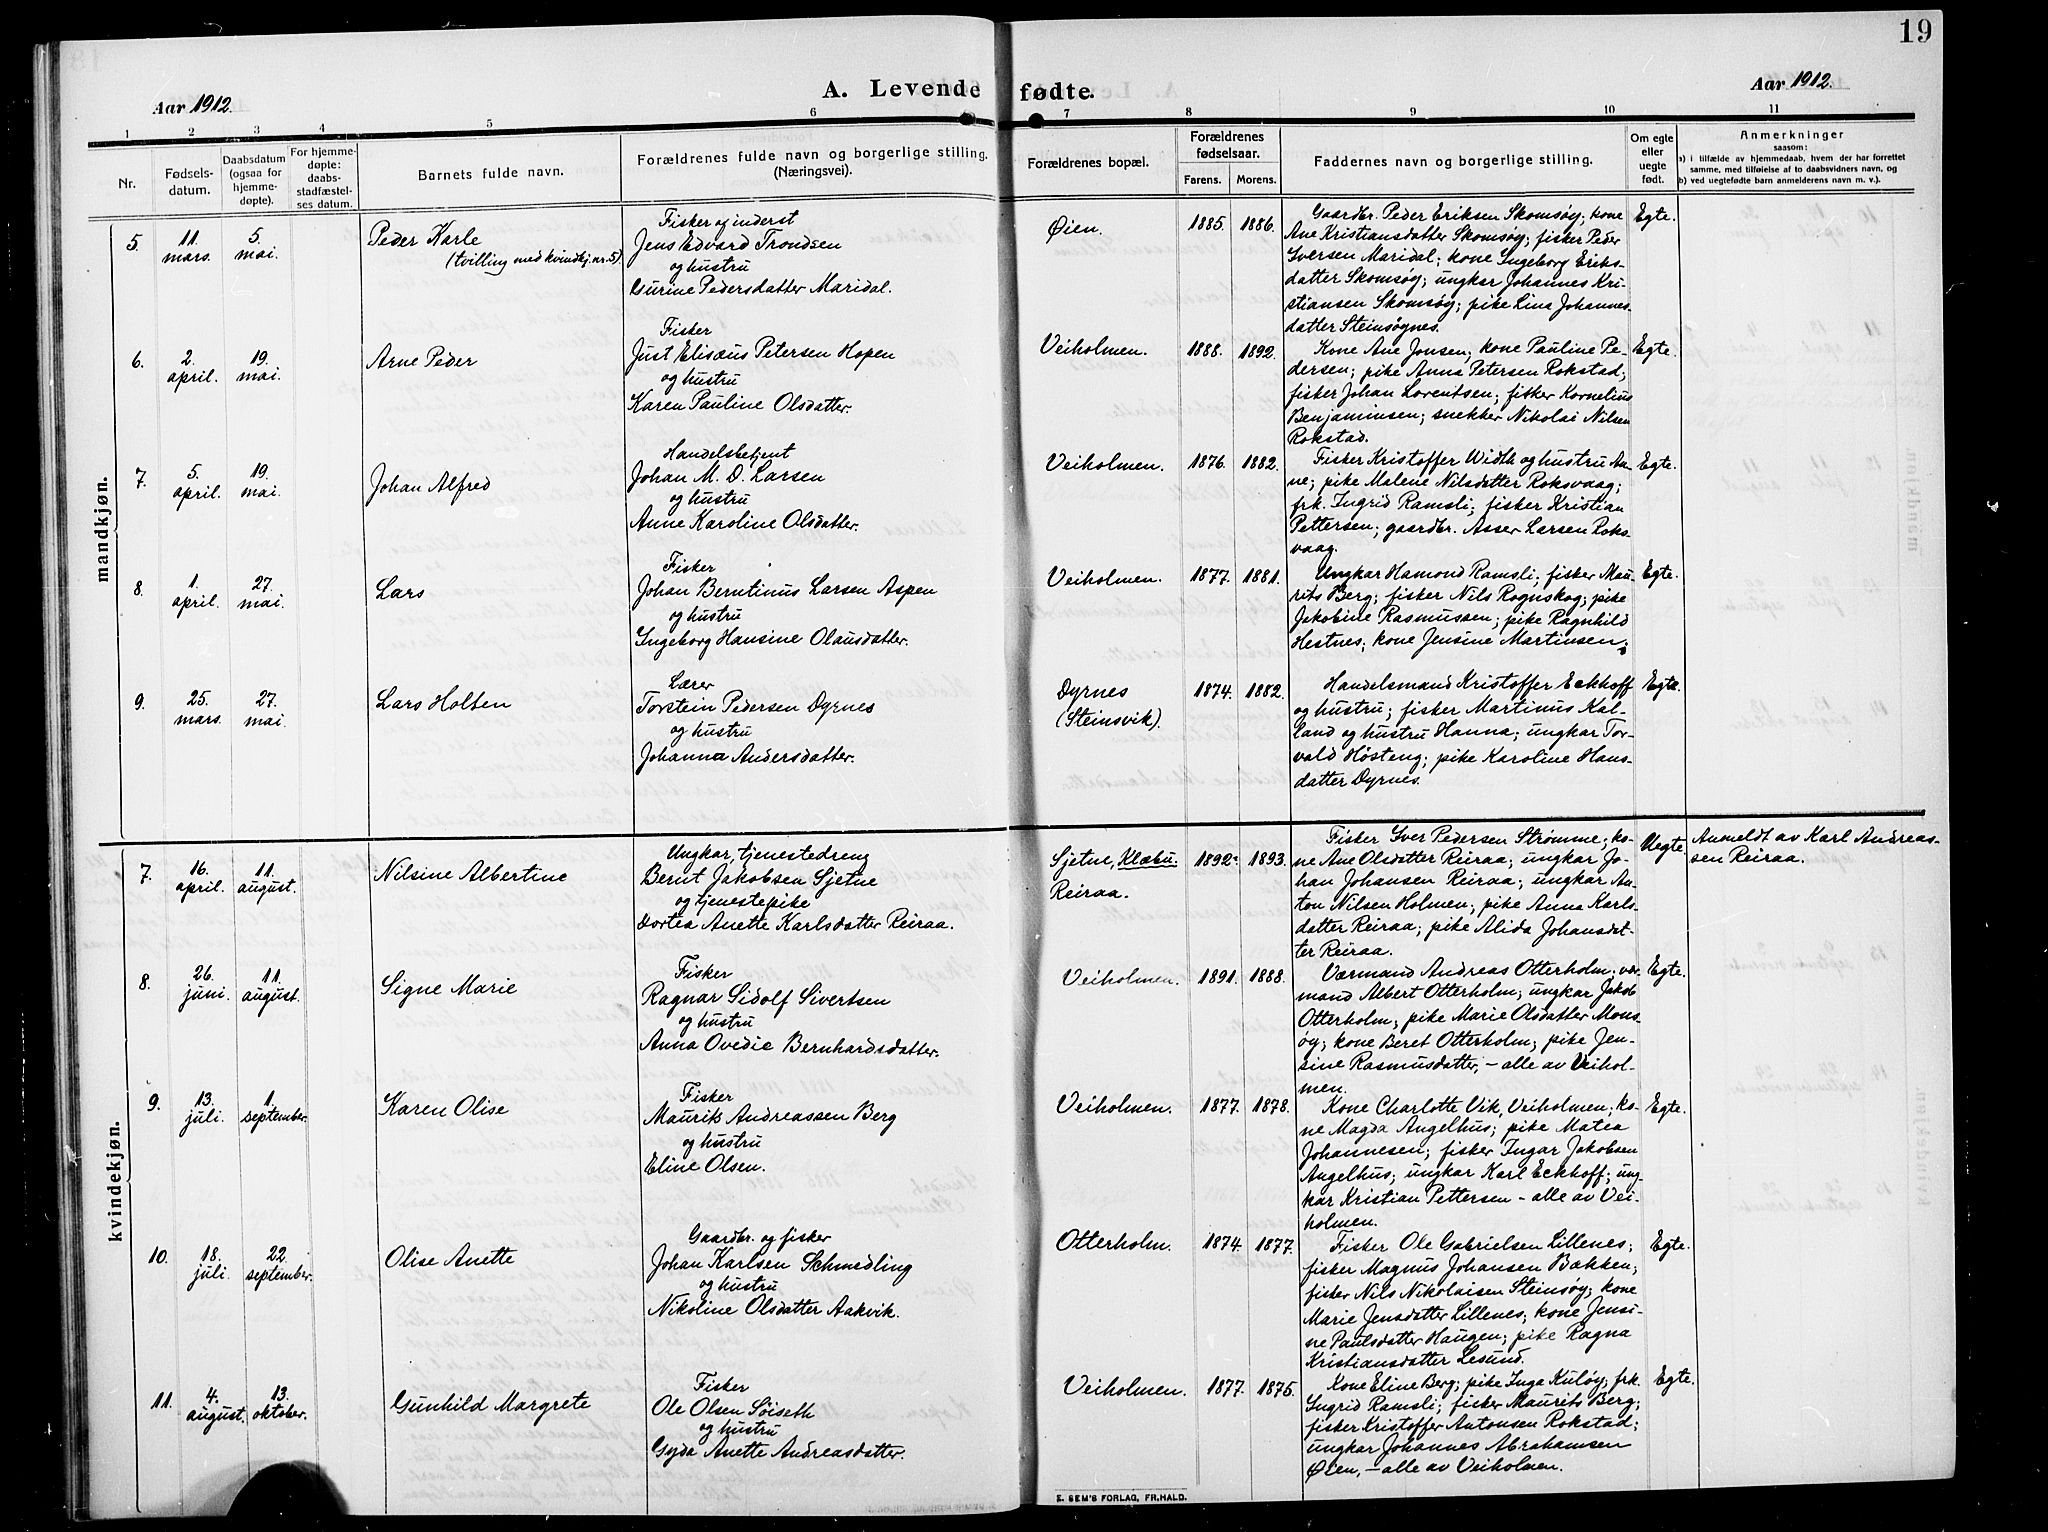 19
Aar 1912.
A. Levende fødte.
Aar 1912.
1 2 3 4 5 6 7 8 9 10 11
Nr.
Fødsels-
datum.
Daabsdatum
(ogsaa for
hjemme-
døpte).
For hjemme-
døpte:
daabs-
stadfæstel-
ses datum.
Barnets fulde navn.
Forældrenes fulde navn og borgerlige stilling.
(Næringsvei).
Forældrenes bopæl.
Forældrenes
fødselsaar.
Farens. Morens.
Faddernes navn og borgerlige stilling.
Om egte
eller
uegte
født.
Anmerkninger
saasom:
a) i tilfælde av hjemmedaab, hvem der har forrettet
samme, med tilføielse af to daabsvidners navn, og
b) ved uegtefødte barn anmelderens navn m. v.).
mandkjøn.
5. 11. mars. 5. mai.
Peder Karle
(tvilling med kvindkj. nr. 5)
Fisker og inderst
Jens Edvard Trondsen
og hustru
Gurine Pedersdatter Maridal.
Øien. 1885. 1886.
Gaardbr. Peder Eriksen Skomsøy; kone
Ane Kristiansdatter Skomsøy; fisker Peder
Iversen Maridal; kone Ingeborg Eriks-
datter Skomsøy; ungkar Johannes Kri-
stiansen Skomsøy; pike Lina Johannes-
datter Steinsøgnes.
Egte.
6. 2. april. 19. mai.
Arne Peder
Fisker
Just Elisæus Petersen Hopen
og hustru
Karen Pauline Olsdatter.
Veiholmen. 1888. 1892.
Kone Ane Jonsen; kone Pauline Pe-
dersen; pike Anna Petersen Rokstad;
fisker Johan Lorentsen; fisker Kornelius
Benjaminsen; snekker Nikolai Nilsen
Rokstad.
Egte.
7. 5. april. 19. mai.
Johan Alfred
Handelsbetjent
Johan M. D. Larsen
og hustru
Anne Karoline Olsdatter.
Veiholmen. 1876. 1882.
Fisker Kristoffer Width og hustru An-
ne; pike Malene Nilsdatter Roksvaag;
frk. Ingrid Ramsli; fisker Kristian
Pettersen; gaardbr. Asser Larsen Roks-
vaag.
Egte.
8. 1. april. 27. mai.
Lars
Fisker
Johan Berntinus Larsen Aspen
og hustru
Ingeborg Hansine Olausdatter.
Veiholmen. 1877. 1881.
Ungkar Hamond Ramsli; fisker Mau-
rits Berg; fisker Nils Rognskog; pike
Jakobine Rasmussen; pike Ragnhild
Hestnes; kone Jensine Martinsen.
Egte.
9. 25. mars. 27. mai.
Lars Holten
Lærer
Torstein Pedersen Dyrnes
og hustru
Johanna Andersdatter.
Dyrnes
(Steinsvik).
1874. 1882.
Handelsmand Kristoffer Eckhoff
og hustru; fisker Martinus Kal-
land og hustru Hanna; ungkar Tor-
vald Høsteng; pike Karoline Hans-
datter Dyrnes.
Egte.
kvindekjøn.
7. 16. april. 11. august.
Nilsine Albertine
Ungkar, tjenestedreng
Bernt Jakobsen Sjetne
og tjenestepike
Dortea Anette Karlsdatter Reiraa.
Sjetne, Klæbu.
Reiraa.
1892. 1893.
Fisker Iver Pedersen Strømme; ko-
ne Ane Olsdatter Reiraa; ungkar Jo-
han Johansen Reiraa; ungkar An-
ton Nilsen Holmen; pike Anna Karls-
datter Reiraa; pike Alida Johansdat-
ter Reiraa.
Uegte.
Anmeldt av Karl Andreas-
sen Reiraa.
8. 26. juni. 11. august.
Signe Marie
Fisker
Ragnar Sidolf Sivertsen
og hustru
Anna Ovedie Bernhardsdatter.
Veiholmen. 1891. 1888.
Værmand Andreas Otterholm; vær-
mand Albert Otterholm; ungkar Jakob
Otterholm; pike Marie Olsdatter Mons-
øy; kone Beret Otterholm; pike Jen-
sine Rasmusdatter, – alle av Veihol-
men.
Egte.
9. 13. juli. 1. september.
Karen Olise
Fisker
Maurits Andreassen Berg
og hustru
Eline Olsen.
Veiholmen. 1877. 1878.
Kone Charlotte Vik, Veiholmen; ko-
ne Magda Angelhus; pike Matea
Johannesen; fisker Ingar Jakobsen
Angelhus; ungkar Karl Eckhoff; ung-
kar Kristian Pettersen – alle av Vei-
holmen.
Egte.
10. 18. juli. 22. september.
Olise Anette
Gaardbr. og fisker
Johan Karlsen Schmedling
og hustru
Nikoline Olsdatter Aakvik.
Otterholm. 1874. 1877.
Fisker Ole Gabrielsen Lillenes;
fisker Magnus Johansen Bakken;
fisker Nils Nikolaisen Steinsøy; kone
Marie Jensdatter Lillenes; kone Jensi-
ne Paulsdatter Haugen; pike Ragna
Kristiansdatter Lesund.
Egte.
11. 4. august. 13. oktober.
Gunhild Margrete
Fisker
Ole Olsen Søiseth
og hustru
Gyda Anette Andreasdatter.
Veiholmen. 1877. 1875.
Kone Eline Berg; pike Inga Kuløy; frk.
Ingrid Ramsli; fisker Maurits Berg;
fisker Kristoffer Antonsen Rokstad;
ungkar Johannes Abrahamsen
Øien, – alle av Veiholmen.
Egte.
E. SEM'S FORLAG, FR.HALD.